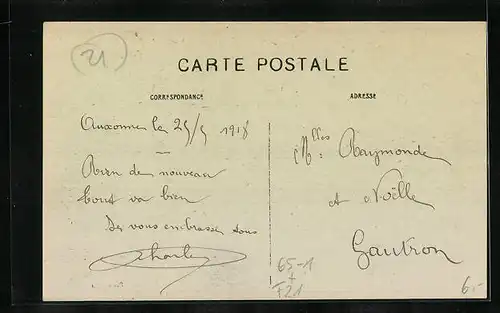 21
CARTE POSTALE
CORRESPONDANCE
ADRESSE
Auxonne le 25/5 1918
Rien de nouveau
tout va bien
Je vous embrasse tous
Charles
Mlles Raymonde
et Noëlle
Gautron
65-1
+
F21
6.-